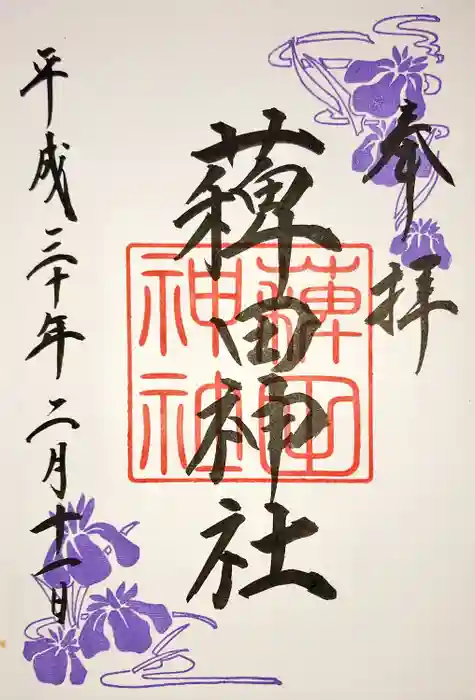 奉拝
薭田神社
薭田神社
平成三十年二月十一日